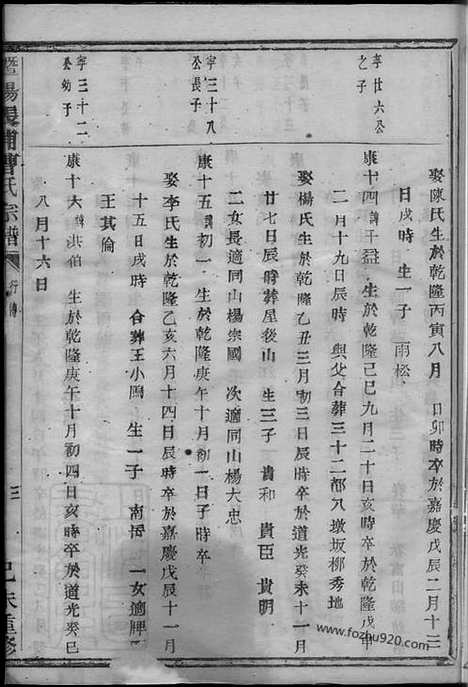 娶陳氏生於乾隆丙寅八月 日卯時卒於嘉慶戊辰二月十三
日戌時 生一子 雨松
寧廿六公
之子
康十四諱于 生於乾隆己巳九月二十日亥時卒於乾隆戊申
二月十九日辰時 與父合葬三十二都八墩坂柳秀地
娶楊氏生於乾隆乙丑三月初三日辰時卒於道光癸未十一月
廿七日辰時葬屋後山 生三子 貴和 貴臣 貴明
二女長適同山楊宗國 次適同山楊大忠
寧三十八
公長子
康十五諱初一 生於乾隆庚午十月初一日子時卒
娶李氏生於乾隆乙亥六月十四日辰時卒於嘉慶戊辰十一月
十五日戌時 合葬王小塢 生一子 南 一女適牌
王其倫
寧三十二
公幼子
康十六諱洪伯 生於乾隆庚午十月初四日亥時卒於道光癸巳
八月十六日
暨陽 浦曹氏宗譜 行傳 三 己未重修
www.fozhu920.com